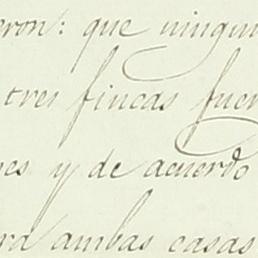 eron: que ningun
tres fincas fuer
nes y de acuerdo
ra ambas casas